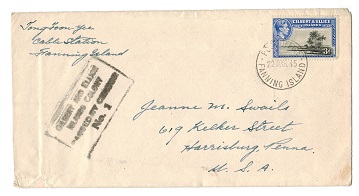 Tong Toon Yee
Cable Station
Fanning Island
GILBERT & ELLICE
ISLANDS
3d
FANNING ISLAND
GILBERT AND ELLICE
ISLANDS COLONY
PASSED BY CENSOR
No. 1
Jeanne M. Swails
619 Kelker Street
Harrisburg, Penna.
U. S. A.